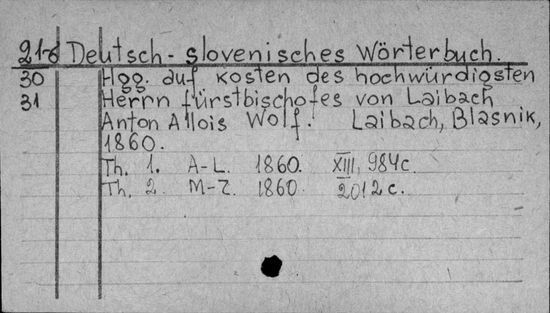 21-6 Deutsch-slovenisches Wörterbuch.
30 Hgg. auf kosten des hochwürdigsten
31 Herrn fürstbischofes von Laibach
Anton Allois Wolf. Laibach, Blasnik,
1860.
Th. 1. A-L. 1860. XIII, 984c.
Th. 2. M-Z. 1860. 2012c.